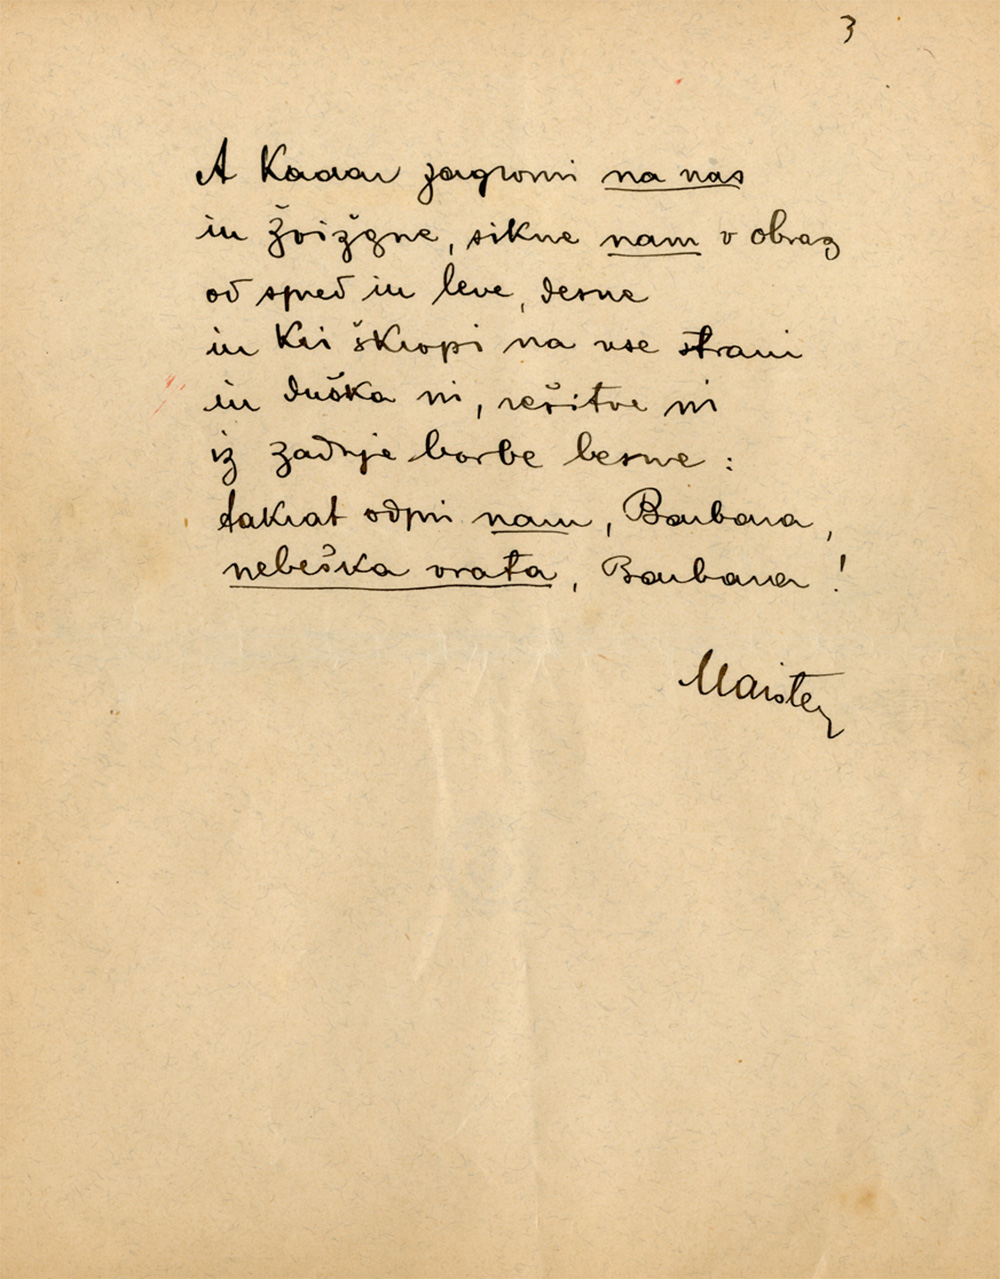 3
A kadar zagromi na nas
in žvižgne, sikne nam v obraz
od spred in leve, desne
in kri škropi na vse strani
in duška ni, rešitve ni
iz zadnje borbe besne :
takrat odpri nam, Barbara,
nebeška vrata, Barbara !
Maister